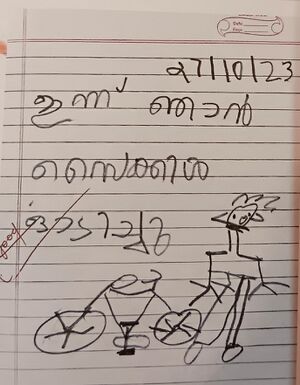 Date
Page
27/10/23
ഇന്ന് ഞാൻ
സൈക്കിൾ
ഓടിച്ചു
good